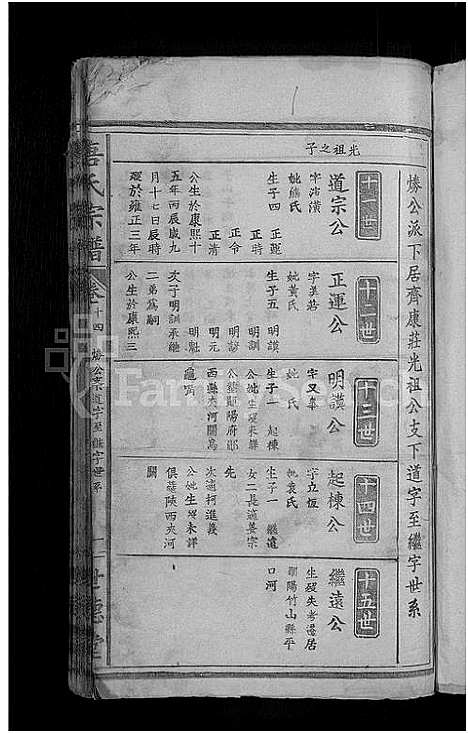 㷫公派下居齊康莊光祖公支下道字至繼字世系
光祖之子
十一世
道宗公
字沛濆
妣熊氏
生子四 正運
正時
正令
正清
公生於康熙十
五年丙辰歲九
月十七日辰時
歿於雍正三年
十二世
正運公
字美莊
妣黃氏
生子五 明謨
明訓
明訪
明元
明魁
次子明訓承繼
二弟為嗣
公生於康熙三
十三世
明謨公
字又臯
妣 氏
生子一 起棟
公妣生歿未詳
公葬鄖陽府鄖
西縣夾河關烏
龜嘴
十四世
起棟公
字立恆
妣袁氏
生子一 繼遠
女二長適姜宗
先
次適柯進義
公妣生歿未詳
俱葬陝西夾河
關
十五世
繼遠公
生歿失考遷居
鄖陽竹山縣平
口河
氏宗譜
卷十四
公派道字至繼字世系
FamilySearch